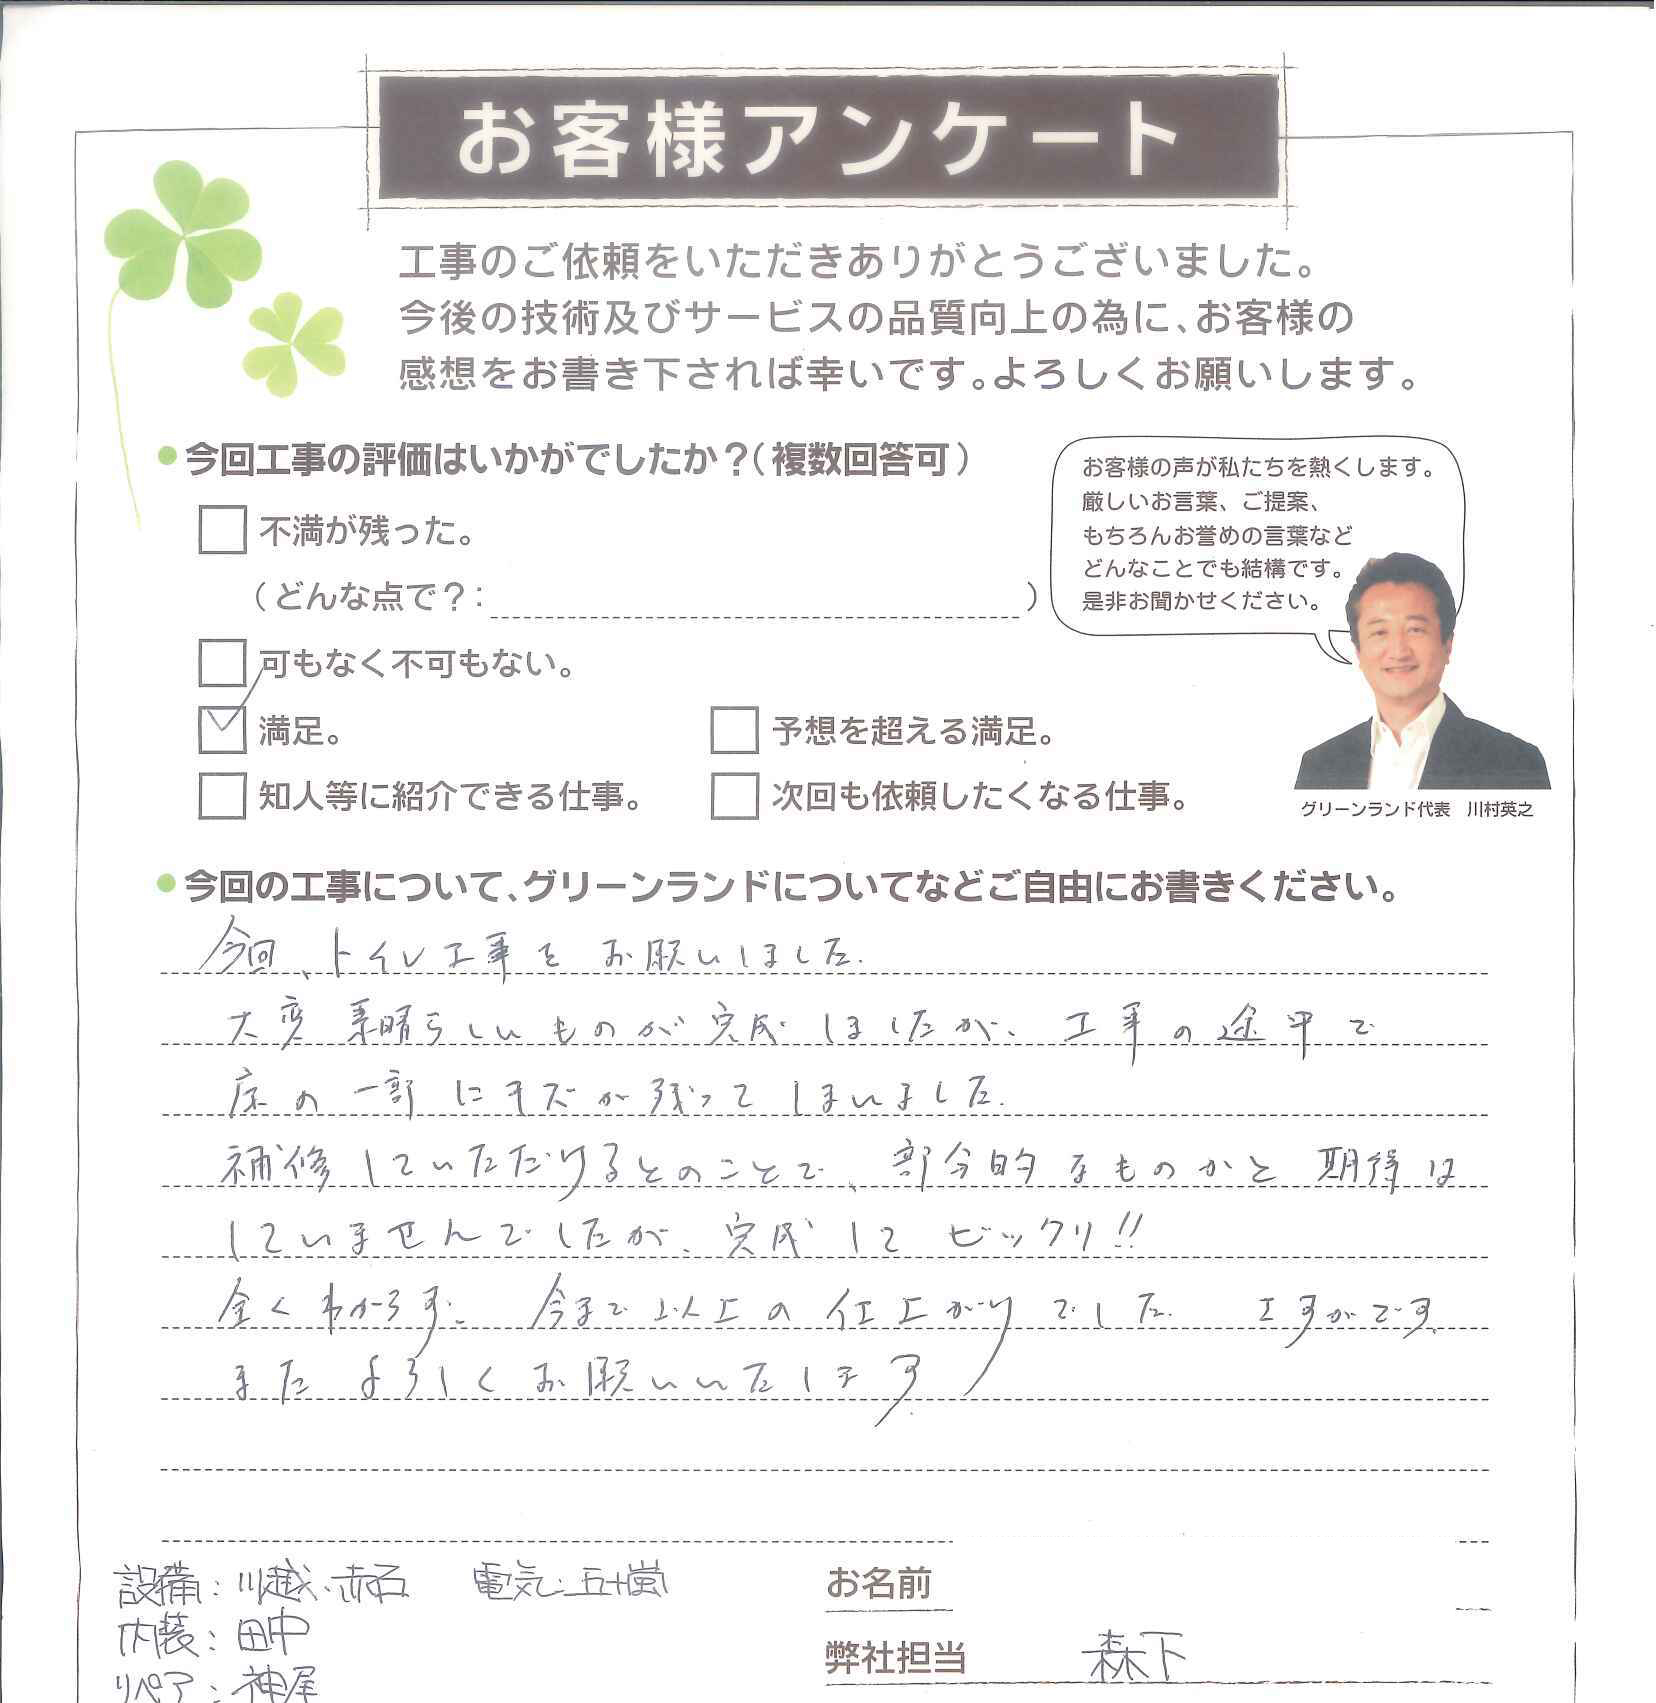 お客様アンケート
工事のご依頼をいただきありがとうございました。
今後の技術及びサービスの品質向上の為に、お客様の
感想をお書き下されば幸いです。よろしくお願いします。
●今回工事の評価はいかがでしたか？（複数回答可）
お客様の声が私たちを熱くします。
厳しいお言葉、ご提案、
もちろんお誉めの言葉など
どんなことでも結構です。
是非お聞かせください。
不満が残った。
（どんな点で？：　　）
可もなく不可もない。
満足。
予想を超える満足。
知人等に紹介できる仕事。
次回も依頼したくなる仕事。
グリーンランド代表　川村英之
●今回の工事について、グリーンランドについてなどご自由にお書きください。
今回、トイレ工事を お願いしました.
大変 素晴らしいものが 完成しましたが、工事の途中で
床の一部にキズが残ってしまいました.
補修していただけるとのことで、部分的なものかと期待は
していませんでしたが、完成して ビックリ!!
全くわからず. 今まで以上の仕上がりでした. さすがです.
またよろしくお願いいたします.
設備：川越、赤石　電気：五十嵐
内装：田中
リペア：神尾
お名前
弊社担当　森下